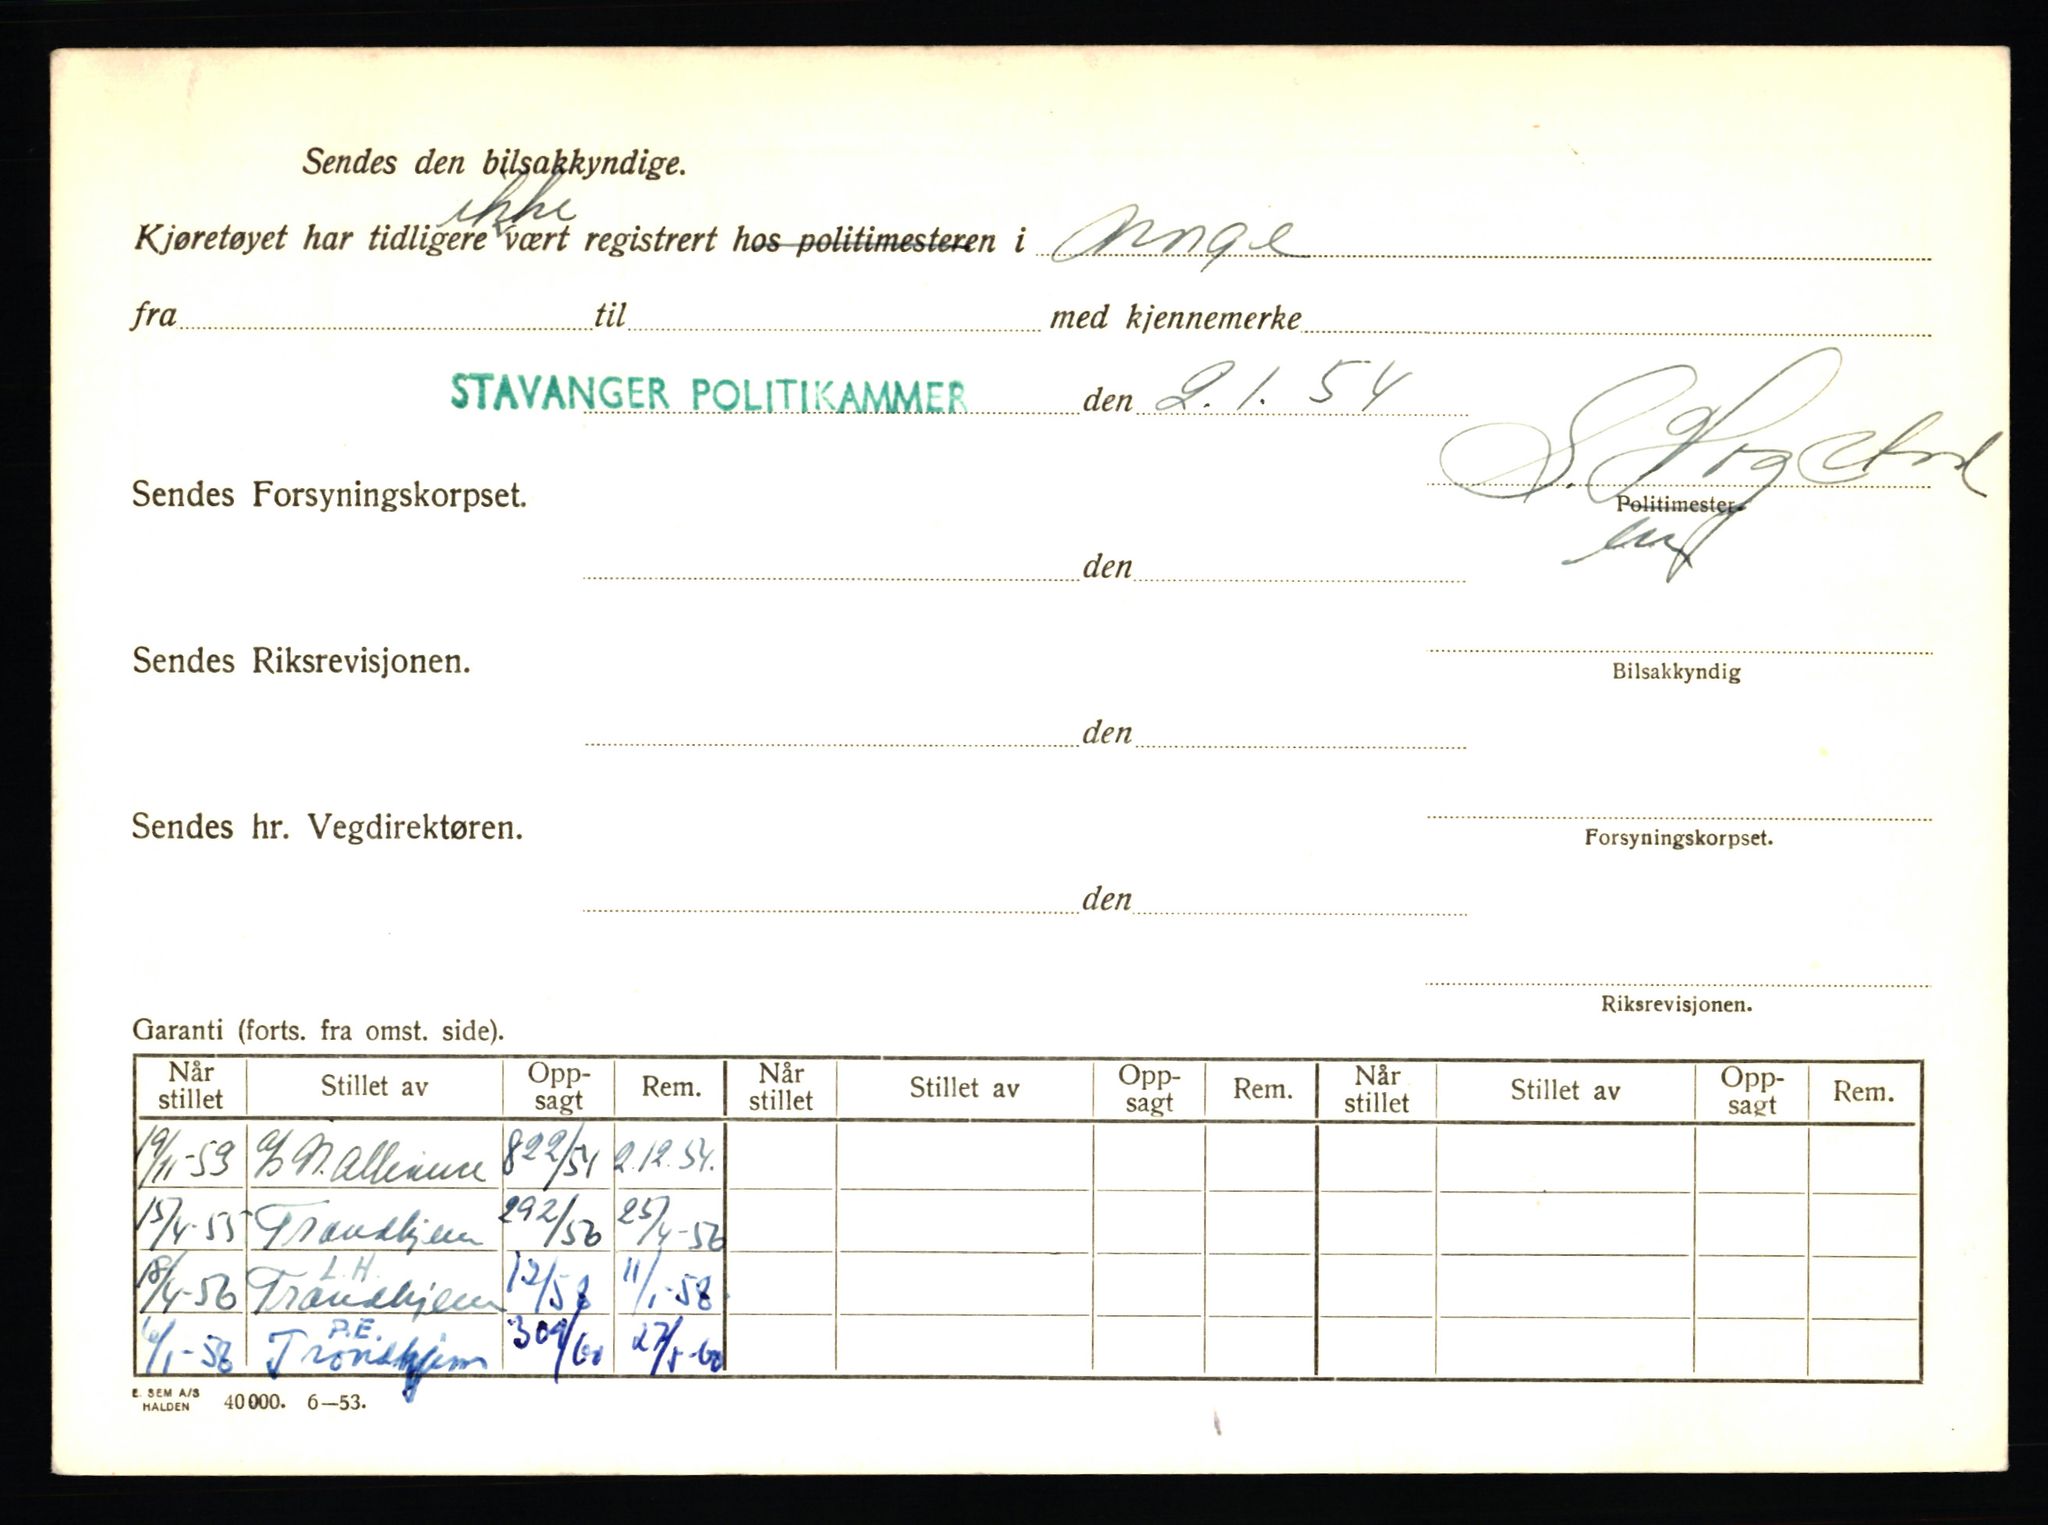 Sendes den bilsakkyndige.
ikke
Kjøretøyet har tidligere vært registrert hos politimesteren i Norge
fra til med kjennemerke
STAVANGER POLITIKAMMER den 2.1.54
Sendes Forsyningskorpset.
Politimester.
den
Sendes Riksrevisjonen.
Bilsakkyndig
den
Sendes hr. Vegdirektøren.
Forsyningskorpset.
den
Riksrevisjonen.
Garanti (forts. fra omst. side).
Når stillet Stillet av Opp-sagt Rem. Når stillet Stillet av Opp-sagt Rem. Når stillet Stillet av Opp-sagt Rem.
19/11-53 A/S N. Alliance 822/54 2.12.54.
15/4-55 Trondhjem 292/56 25/4-56
18/4-56 Trondhjem L.H. 12/58 11/1-58.
6/1-58 Trondhjem P.E. 309/60 27/5-60
E. SEM A/S HALDEN 40000. 6—53.